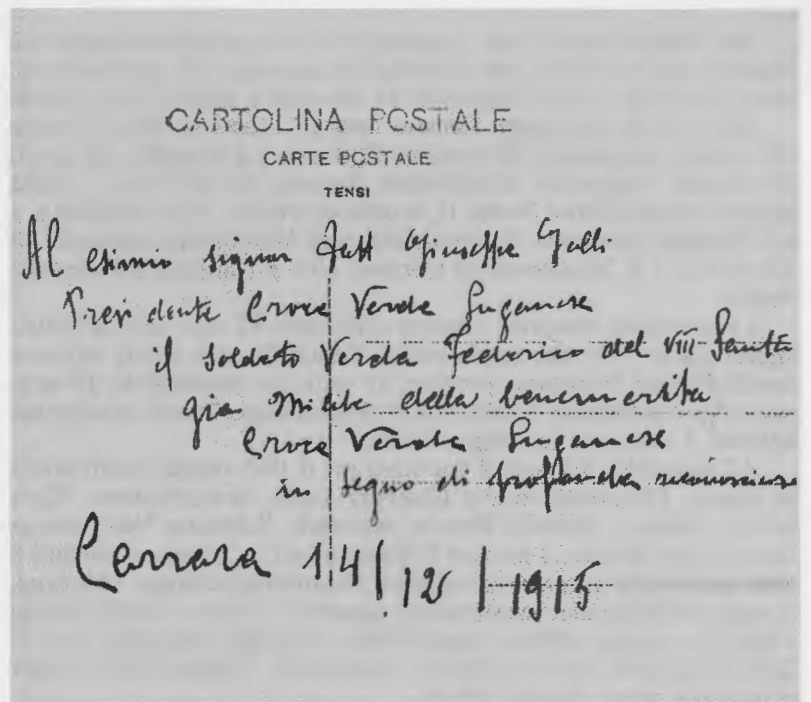 CARTOLINA POSTALE
CARTE POSTALE
TENSI
Al esimio signor Dott Giuseppe Galli
Presidente Croce Verde Luganese
il soldato Verda Federico del VIII Sanità
già Milite della benemerita
Croce Verde Luganese
in segno di profonda
Carrara 14/12/1915